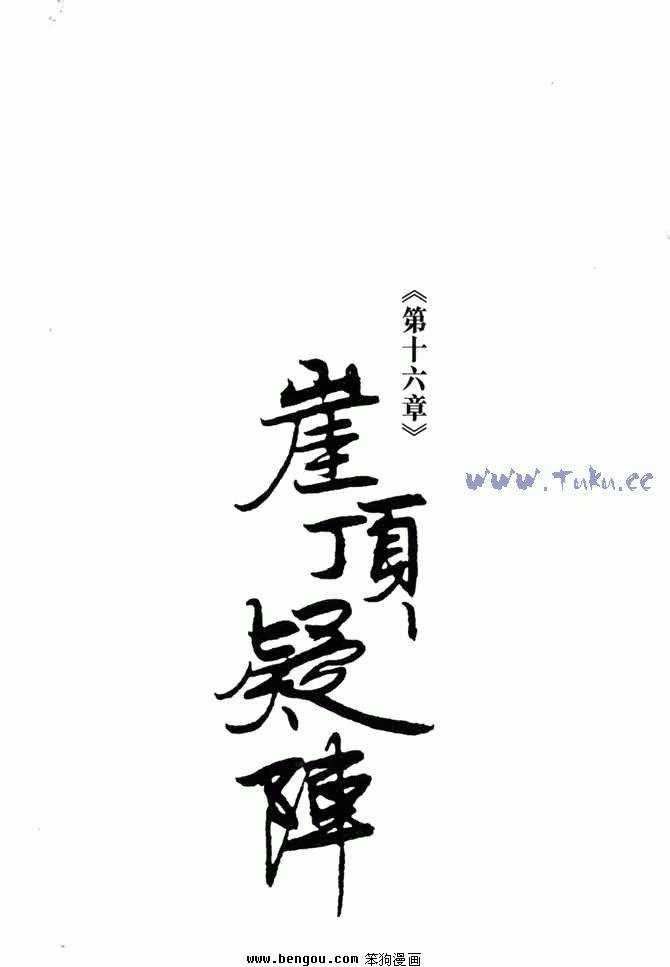 《第十六章》
崖頂疑陣
www.Tuku.cc
www.bengou.com 笨狗漫画